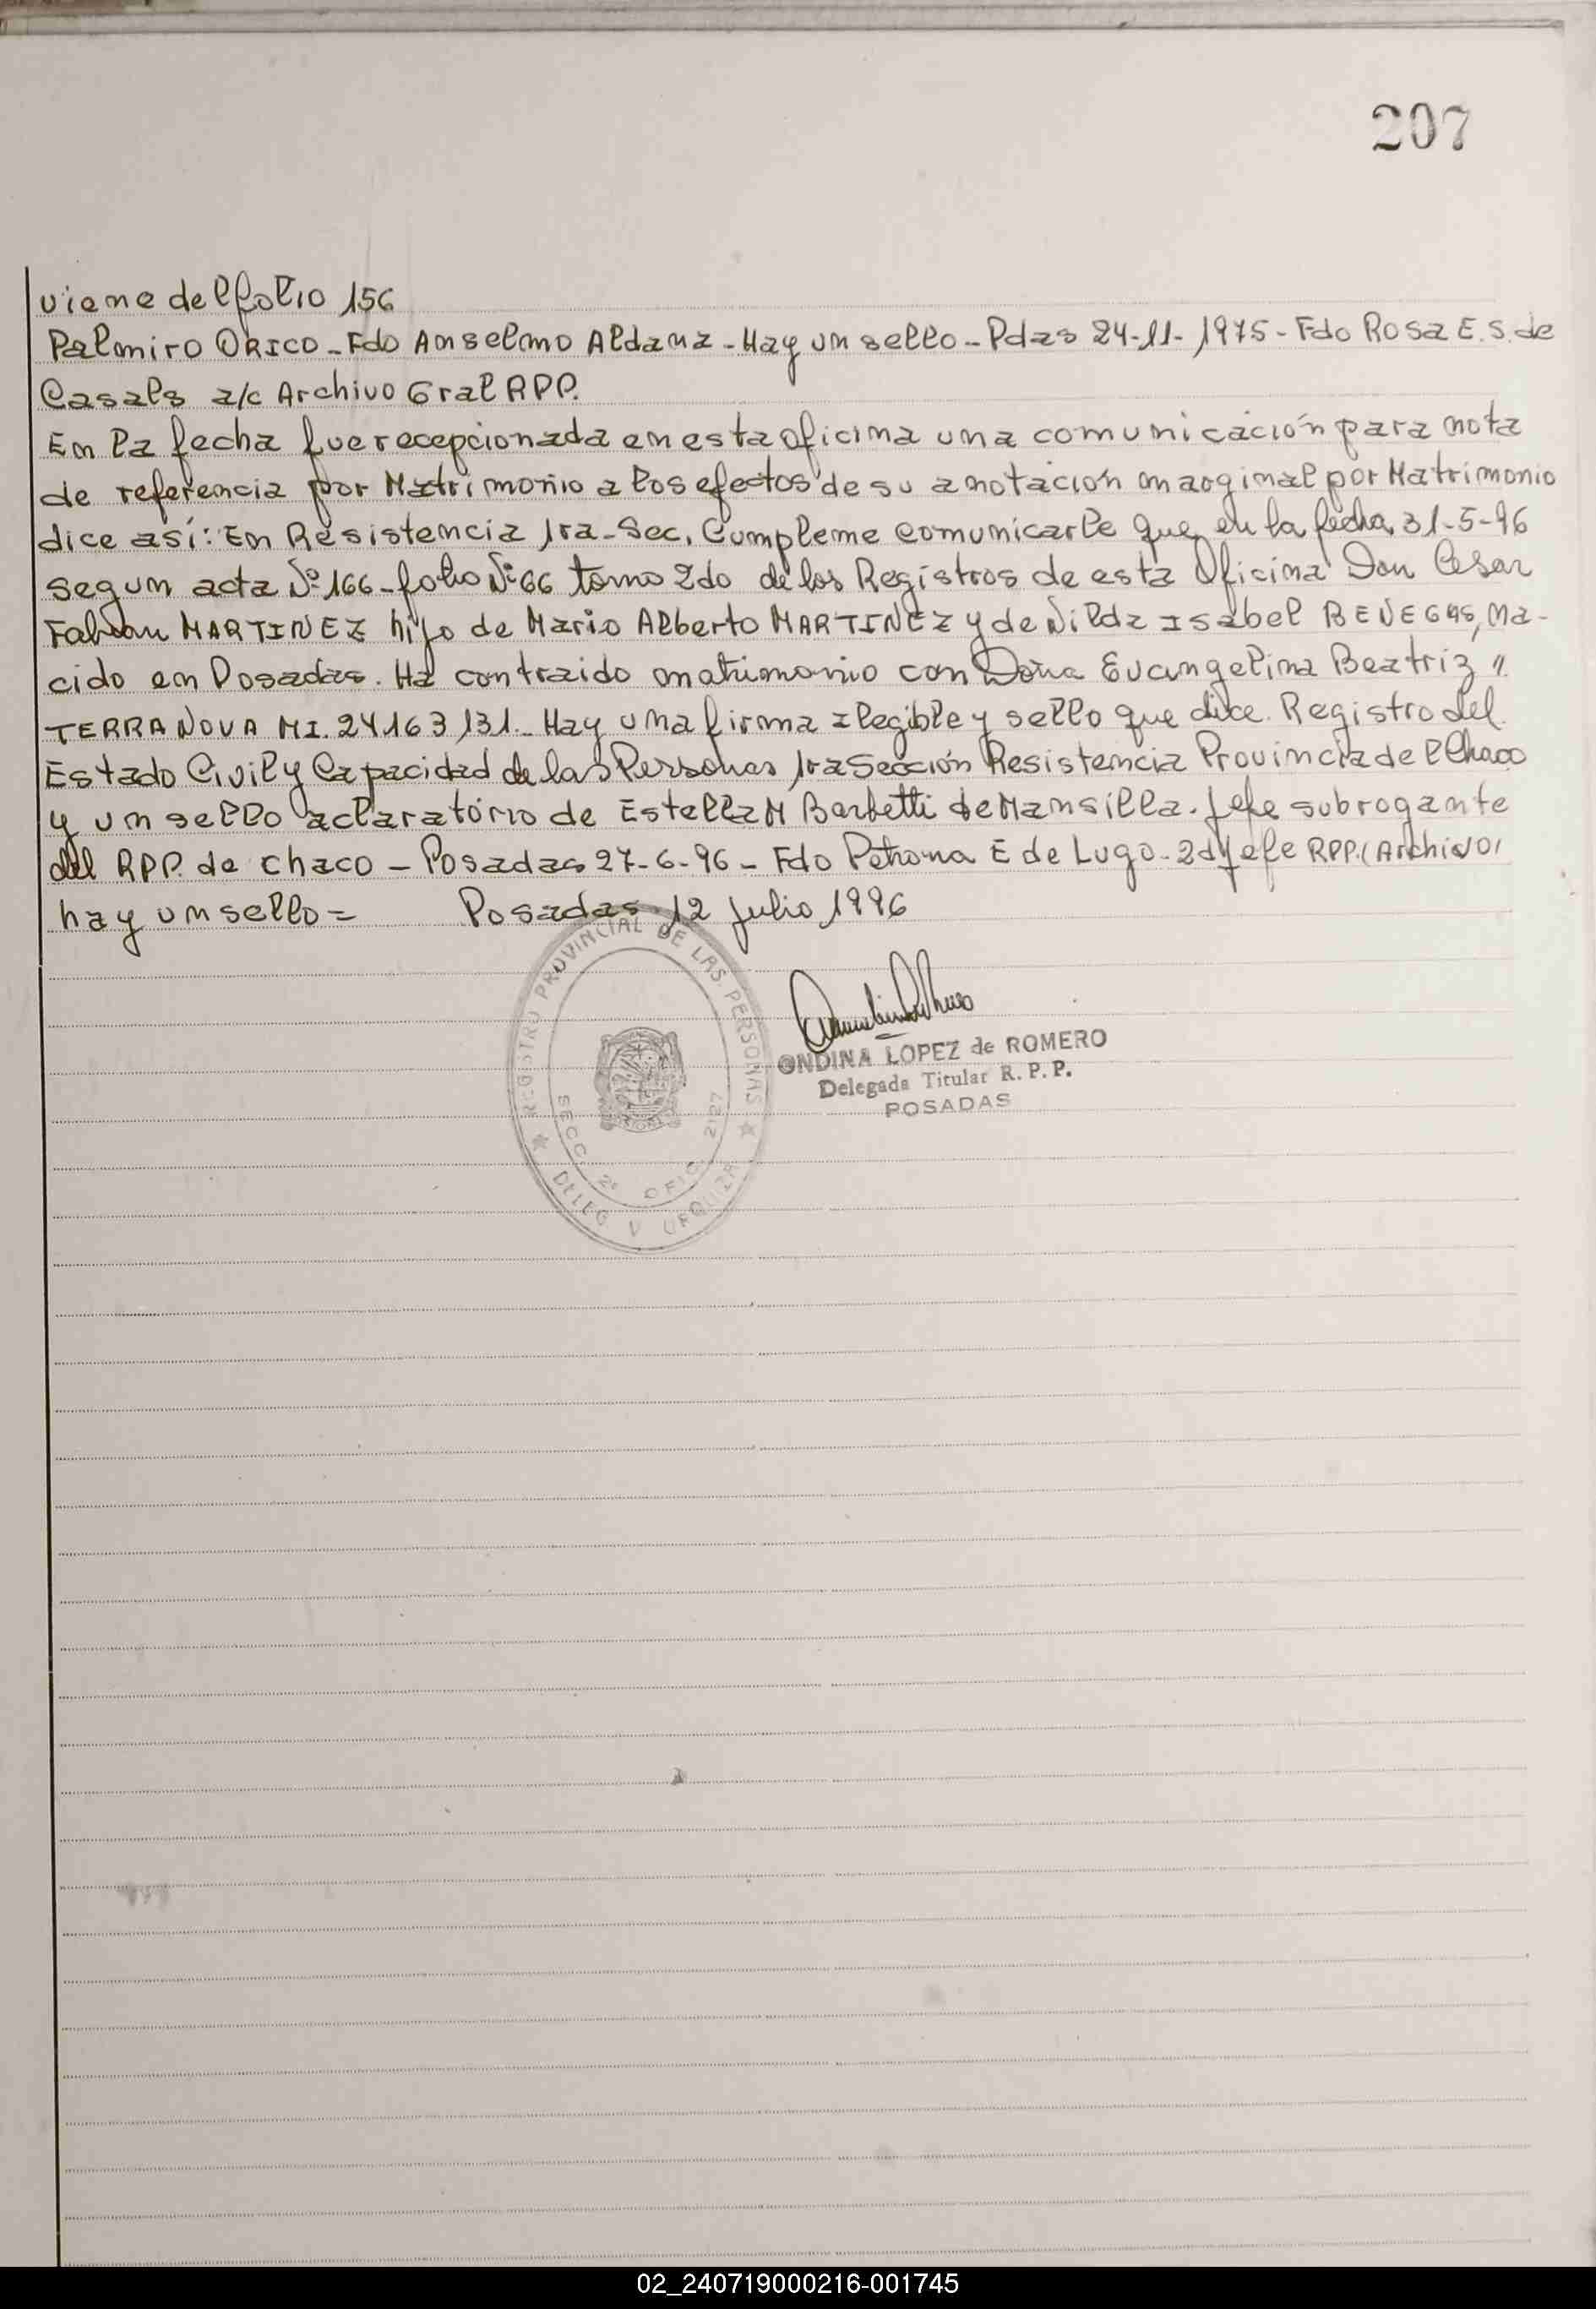 207
viene del folio 156
Palmiro ORICO - Fdo Anselmo Aldana - Hay un sello - Pdas 24-11-1975 - Fdo Rosa E. S. de
Casals a/c Archivo Gral RPP.
En la fecha fue recepcionada en esta oficina una comunicación para nota
de referencia por Matrimonio a los efectos de su anotación marginal por Matrimonio
dice así: En Resistencia 1ra-Sec. Cumpleme comunicarle que en la fecha 31-5-96
segun acta Nº 166 - folio Nº 66 tomo 2do de los Registros de esta Oficina Don Cesar
Fabian MARTINEZ hijo de Mario Alberto MARTINEZ y de Nilda Isabel BENEGAS, na-
cido en Posadas. Ha contraido matrimonio con Doña Evangelina Beatriz "
TERRANOVA MI. 24.163.131. Hay una firma ilegible y sello que dice. Registro del
Estado Civil y Capacidad de las Personas 1ra Sección Resistencia Provincia del Chaco
y un sello aclaratorio de Estella M Barbetti de Mansilla. Jefe subrogante
del RPP. de Chaco - Posadas 27-6-96 - Fdo Petrona E de Lugo - 2d Jefe RPP. (Archivo)
hay un sello = Posadas 12 Julio 1996
REGISTRO PROVINCIAL DE LAS PERSONAS
SECC. 2º OFIC. 2127
DELEG V URQUIZA
ONDINA LOPEZ de ROMERO
Delegada Titular R. P. P.
POSADAS
02_240719000216-001745